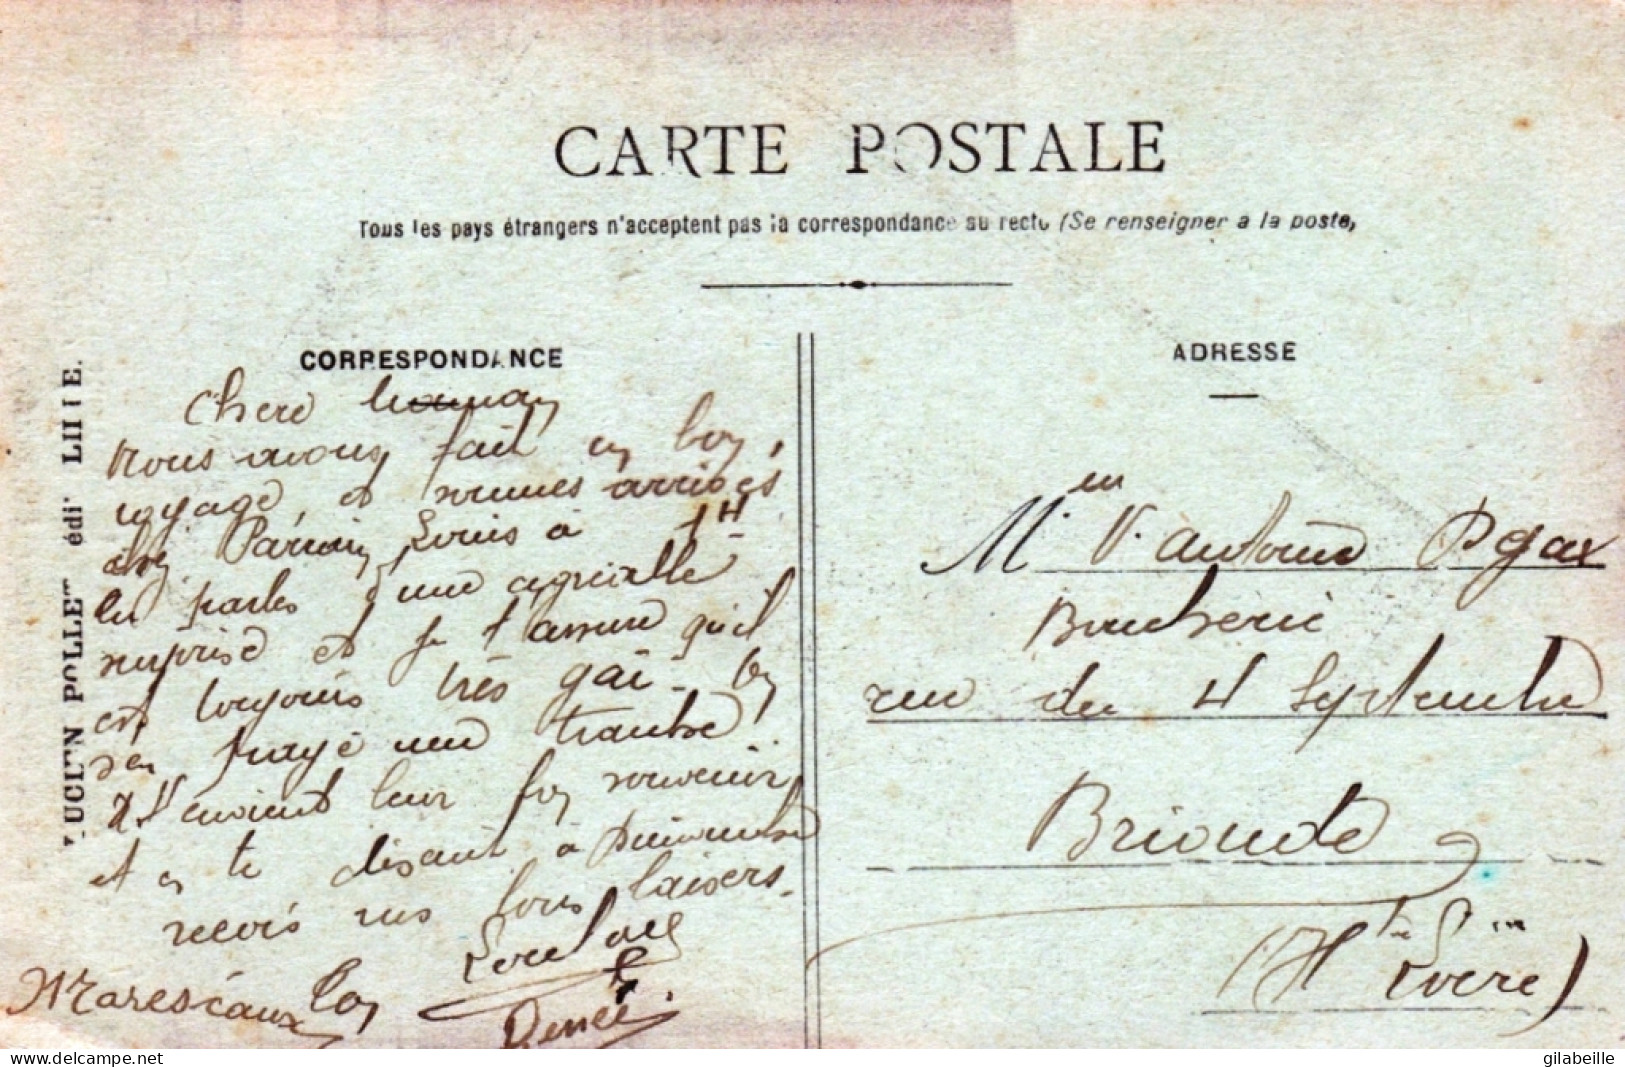 CARTE POSTALE
Tous les pays étrangers n'acceptent pas la correspondance au recto (Se renseigner a la poste,
CORRESPONDANCE
ADRESSE
LUCIEN POLLET édit LILLE.
Chere
nous avons fait un bon
voyage, et sommes arrivés
chez Parrain Louis à 1H
tu parles d'une agréable
surprise et je t'assure qu'il
est toujours très gai. On
s'en payé une tranche
Ils t'envoient leur bon souvenir
et en te disant à Dimanche
recois nos bons baisers.
Renée
Mareseaux
Men V. Antoine
Boucherie
rue du 4 Septembre
Brioude
(Hte Loire)
delcampe.net
gilabeille